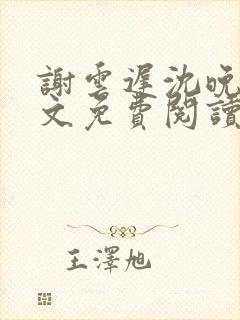 謝雲遲沈晚
文免費閱讀
王澤旭